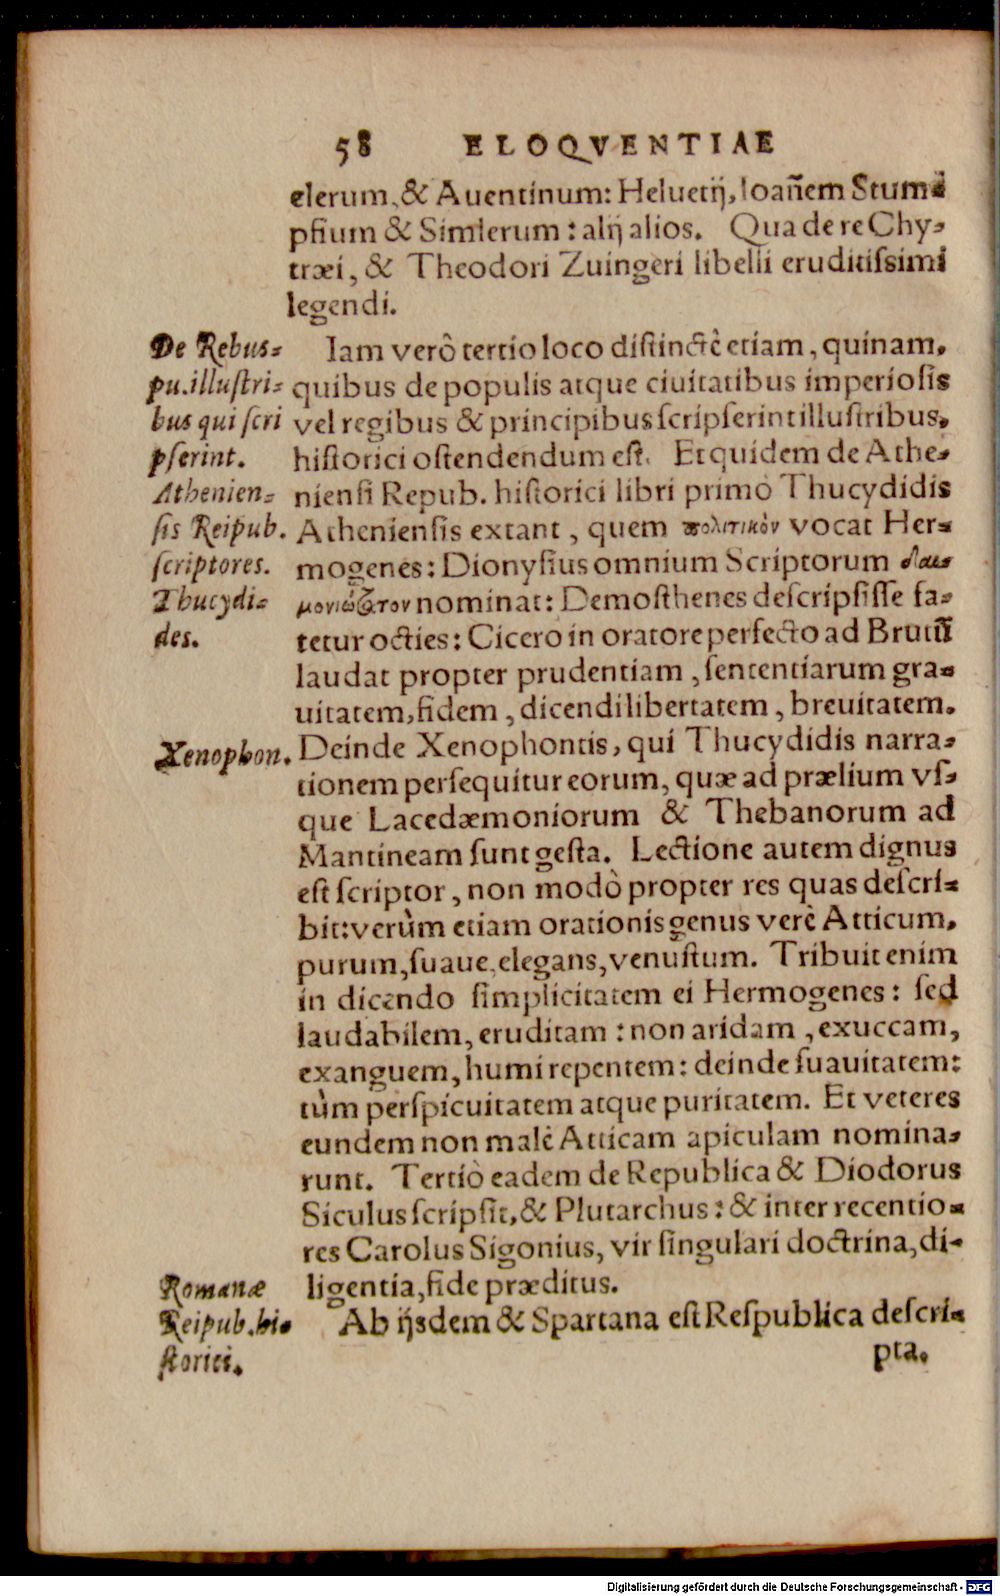 58 ELOQVENTIAE
elerum, & Auentinum: Heluetij, Ioañem Stum⸗
pfium & Simlerum: alij alios. Qua de re Chy⸗
træi, & Theodori Zuingeri libelli eruditiſsimi
legendi.
De Rebus⸗
pu. illuſtri⸗
bus qui ſcri
pſerint.
Iam verò tertio loco diſtinctè etiam, quinam,
quibus de populis atque ciuitatibus imperioſis
vel regibus & principibus ſcripſerint illuſtribus,
hiſtorici oſtendendum eſt. Et quidem de Athe⸗
Athenien⸗
ſis Reipub.
ſcriptores.
Thucydi⸗
des.
nienſi Repub. hiſtorici libri primò Thucydidis
Athenienſis extant, quem πολιτικὸν vocat Her⸗
mogenes: Dionyſius omnium Scriptorum δαι⸗
μονιώτατον nominat: Demoſthenes deſcripſiſſe fa⸗
tetur octies: Cicero in oratore perfecto ad Brutũ
laudat propter prudentiam, ſententiarum gra⸗
uitatem, fidem, dicendi libertatem, breuitatem.
Xenophon.
Deinde Xenophontis, qui Thucydidis narra⸗
tionem perſequitur eorum, quæ ad prælium vſ⸗
que Lacedæmoniorum & Thebanorum ad
Mantineam ſunt geſta. Lectione autem dignus
eſt ſcriptor, non modò propter res quas deſcri⸗
bit: verùm etiam orationis genus verè Atticum,
purum, ſuaue, elegans, venuſtum. Tribuit enim
in dicendo ſimplicitatem ei Hermogenes: ſed
laudabilem, eruditam: non aridam, exuccam,
exanguem, humi repentem: deinde ſuauitatem:
tùm perſpicuitatem atque puritatem. Et veteres
eundem non malè Atticam apiculam nomina⸗
runt. Tertiò eadem de Republica & Diodorus
Siculus ſcripſit, & Plutarchus: & inter recentio⸗
res Carolus Sigonius, vir ſingulari doctrina, di⸗
ligentia, fide præditus.
Romanæ
Reipub. hi⸗
ſtorici.
Ab ijsdem & Spartana eſt Reſpublica deſcri⸗
pta.
Digitalisierung gefördert durch die Deutsche Forschungsgemeinschaft - DFG